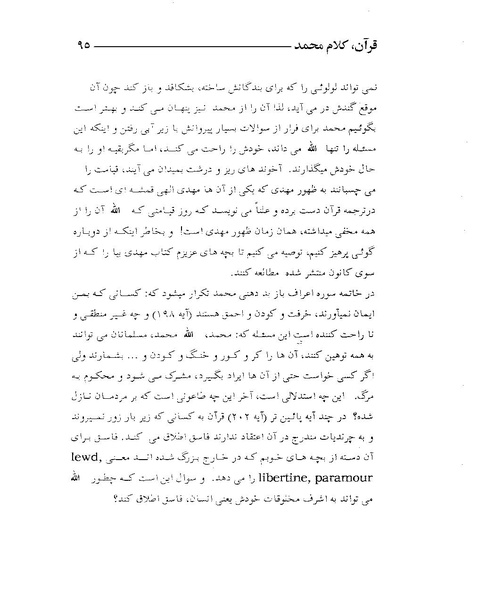 قرآن، کلام محمد ــــــــــــــــــــــــــــــــ ۹۵
نمی تواند لولوئی را که برای بندگانش ساخته، بشکافد و باز کند چون آن
موقع گندش در می آید، لذا آن را از محمد نیز پنهان می کند و بهتر است
بگوئیم محمد برای فرار از سوالات بسیار پیروانش با زیر آبی رفتن و اینکه این
مسئله را تنها الله می داند، خودش را راحت می کند، اما مگر بقیه او را به
حال خودش میگذارند. آخوند های ریز و درشت بمیدان می آیند، قیامت را
می چسبانند به ظهور مهدی که یکی از آن ها مهدی الهی قمشه ای است که
درترجمه قرآن دست برده و علناً می نویسد که روز قیامتی که الله آن را از
همه مخفی میداشته، همان زمان ظهور مهدی است! و بخاطر اینکه از دوباره
گوئی پرهیز کنیم، توصیه می کنیم تا بچه های عزیزم کتاب مهدی بیا را که از
سوی کانون منتشر شده مطالعه کنند.
در خاتمه سوره اعراف باز بد دهنی محمد تکرار میشود که: کسانی که بمن
ایمان نمیآورند، خرفت و کودن و احمق هستند (آیه ۱۹۸) و چه غیر منطقی و
نا راحت کننده است این مسئله که: محمد، الله محمد، مسلمانان می توانند
به همه توهین کنند، آن ها را کر و کور و خنگ و کودن و ... بشمارند ولی
اگر کسی خواست حتی از آن ها ایراد بگیرد، مشرک می شود و محکوم به
مرگ. این چه استدلالی است، آخر این چه طاعونی است که بر مردمان نازل
شده؟ در چند آیه پائین تر (آیه ۲۰۲) قرآن به کسانی که زیر بار زور نمیروند
و به چرندیات مندرج در آن اعتقاد ندارند فاسق اطلاق می کند. فاسق برای
آن دسته از بچه های خوبم که در خارج بزرگ شده اند معنی lewd,
libertine, paramour را می دهد. و سوال این است که چطور الله
می تواند به اشرف مخلوقات خودش یعنی انسان، فاسق اطلاق کند؟